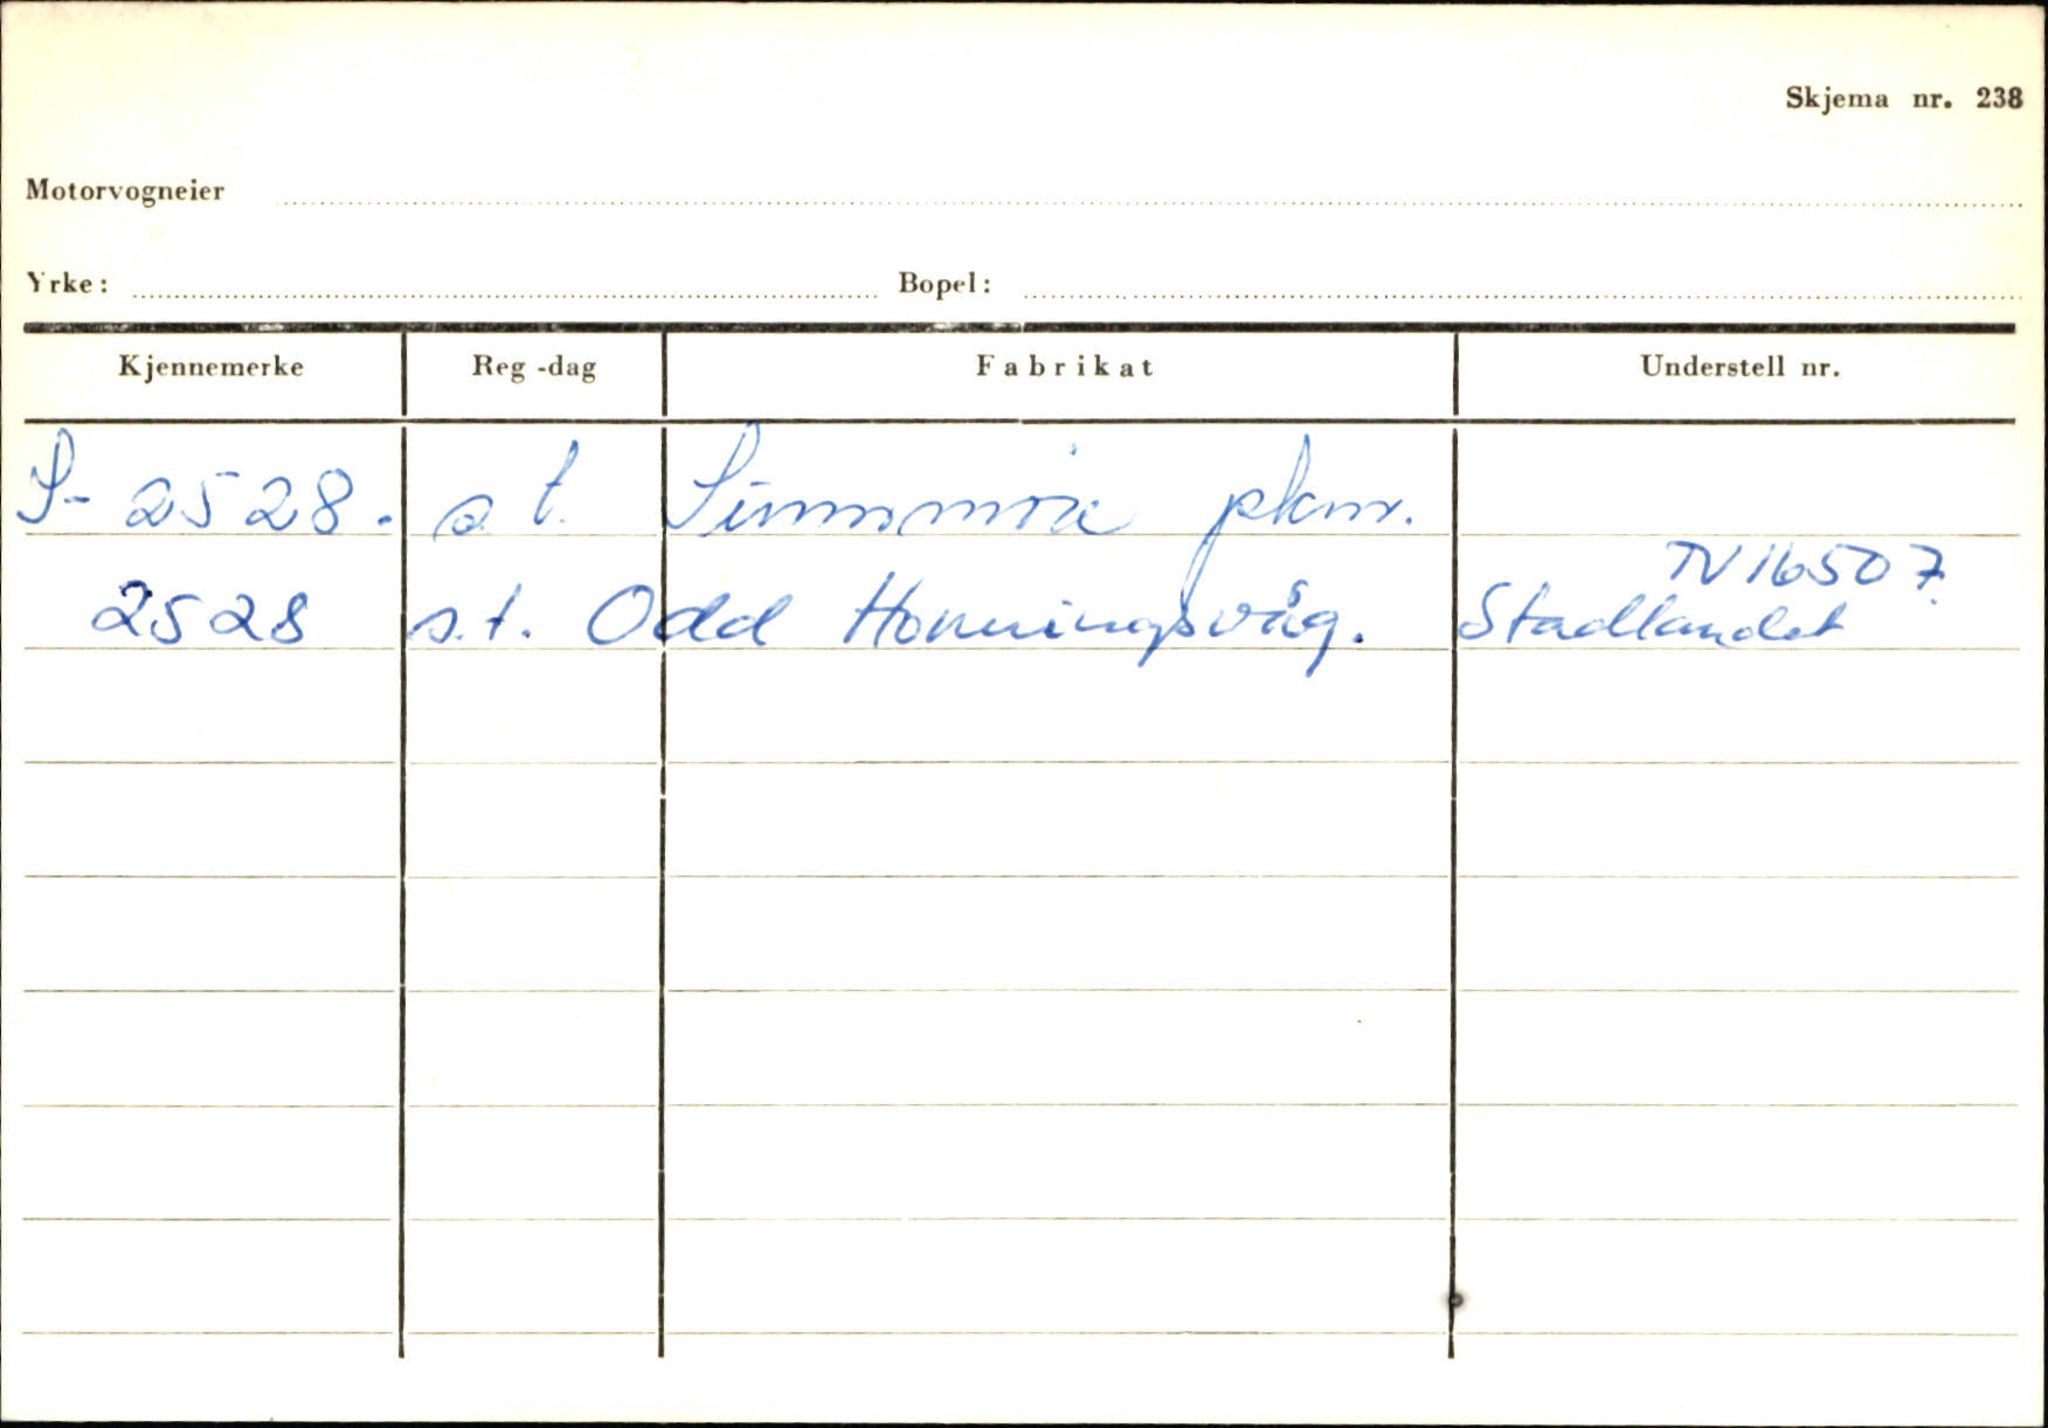 Skjema nr. 238
Motorvogneier
Yrke: Bopel:
Kjennemerke Reg-dag Fabrikat Understell nr.
S-2528. s.t. pkm.
TV16507.
2528 s.t. Odd Honningsvåg. Stadlandet